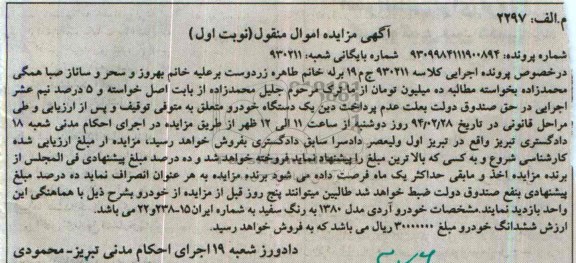 م.الف: ۲۲۹۷
آگهی مزایده اموال منقول(نوبت اول)
شماره پرونده: ۹۳۰۹۹۸۴۱۱۱۹۰۰۸۹۴ شماره بایگانی شعبه: ۹۳۰۲۱۱
درخصوص پرونده اجرایی کلاسه ۹۳۰۲۱۱ ج۱۹ برله خانم طاهره زردوست برعلیه خانم بهروز و سحر و ساناز صبا همگی
محمدزاده بخواسته مطالبه ده میلیون تومان از ماترک مرحوم جلیل محمدزاده از بابت اصل خواسته و ۵ درصد نیم عشر
اجرایی در حق صندوق دولت بعلت عدم پرداخت دین یک دستگاه خودرو متعلق به متوفی توقیف و پس از ارزیابی و طی
مراحل قانونی در تاریخ ۹۴/۰۲/۲۸ روز دوشنبه از ساعت ۱۱ الی ۱۲ ظهر از طریق مزایده در اجرای احکام مدنی شعبه ۱۸
دادگستری تبریز واقع در تبریز اول ولیعصر دادسرا سابق دادگستری بفروش خواهد رسید، مزایده از مبلغ ارزیابی شده
کارشناسی شروع و به کسی که بالا ترین مبلغ را پیشنهاد نماید فروخته خواهد شد و ده درصد مبلغ پیشنهادی فی المجلس از
برنده مزایده اخذ و مابقی حداکثر یک ماه فرصت داده می شود برنده مزایده به هر عنوان انصراف نماید ده درصد مبلغ
پیشنهادی بنفع صندوق دولت ضبط خواهد شد طالبین میتوانند پنج روز قبل از مزایده از خودرو بشرح ذیل با هماهنگی این
واحد بازدید نمایند.مشخصات خودرو آردی مدل ۱۳۸۰ به رنگ سفید به شماره ایران۱۵-۲۳۸و۲۲ می باشد.
ارزش ششدانگ خودرو مبلغ ۳۰۰۰۰۰۰۰ ریال می باشد که به فروش خواهد رسید.
دادورز شعبه ۱۹اجرای احکام مدنی تبریز- محمودی